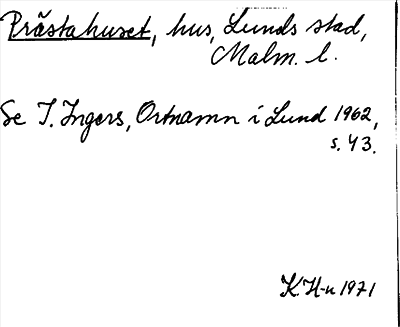 Prästahuset, hus, Lunds stad,
Malm. l.
Se I. Ingers, Ortnamn i Lund 1962,
s. 43.
K.H-n 1971